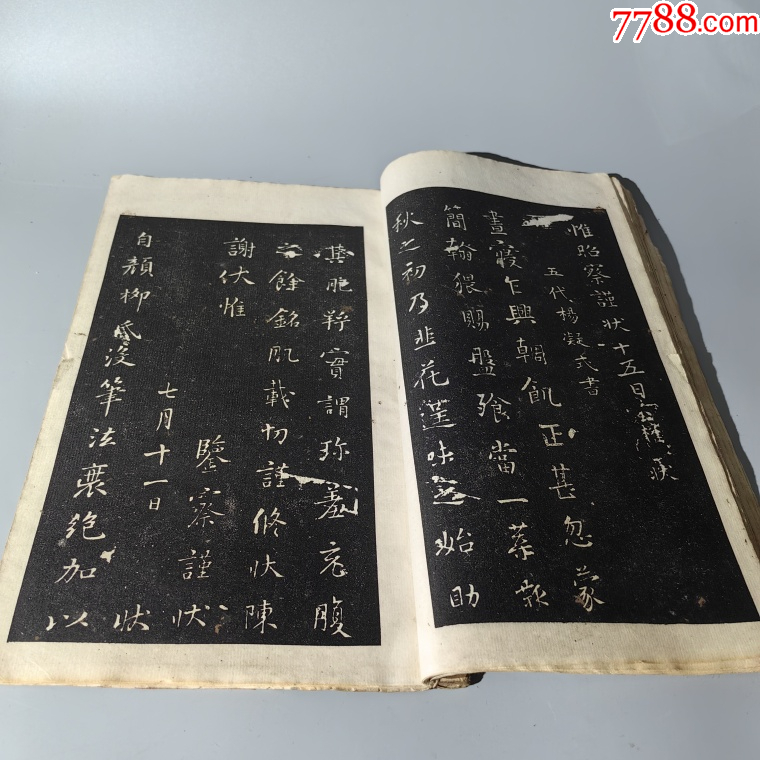 7788.com
惟昭察謹狀十五日
五代楊凝式書
晝寢乍興輖飢正甚忽蒙
簡翰猥賜盤飧當一葉報
秋之初乃韭花逞味之始助
其肥羜實謂珍羞充腹
之餘銘肌載切謹修狀陳
謝伏惟
鑒察謹狀
七月十一日 狀
自顏柳氏沒筆法衰絕加以